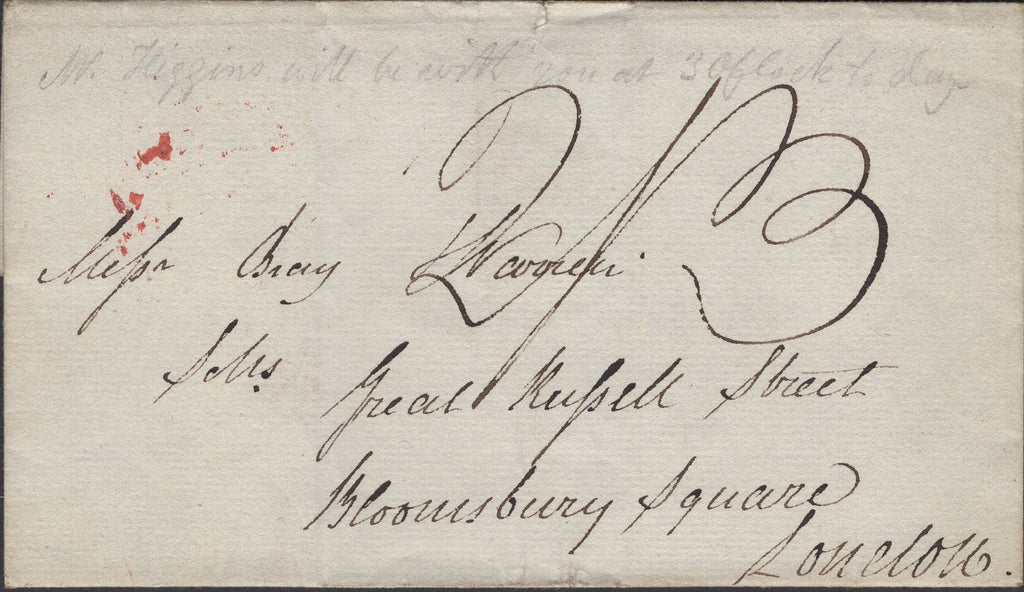 Mr. Higgins will be with you at 3 O'Clock to day
2/3
Messrs Bray & Warren
Solrs.
Great Russell Street
Bloomsbury Square
London.